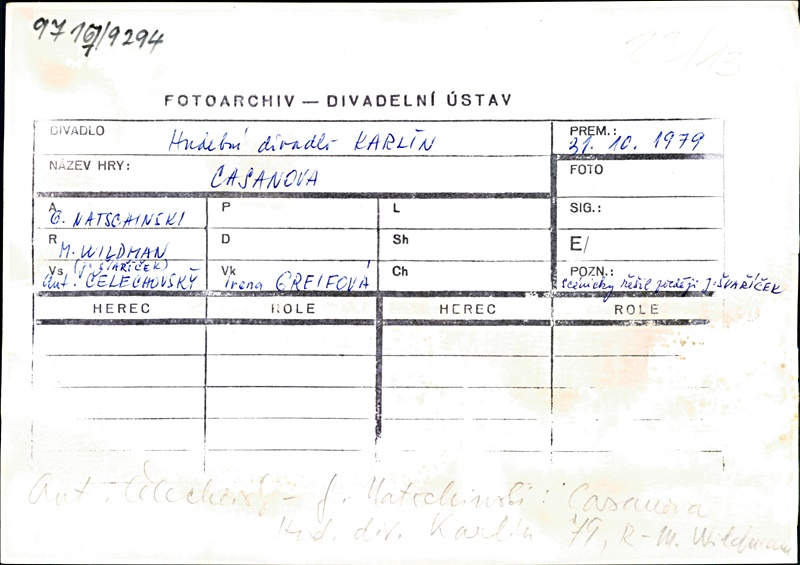 97 167/9294
FOTOARCHIV — DIVADELNÍ ÚSTAV
DIVADLO Hudební divadlo KARLÍN
PREM.: 31. 10. 1979
NÁZEV HRY: CASANOVA
FOTO
A G. NATSCHINSKI
P
L
SIG.:
R M. WILDMAN
D
Sh
E/
Vs (J. ŠVAŘÍČEK) Ant. ČELECHOVSKÝ
Vk Irena GREIFOVÁ
Ch
POZN.: scénicky řešil později J. ŠVAŘÍČEK
HEREC ROLE HEREC ROLE
Ant. Čelechovský – G. Natschinski: Casanova
Hud. div. Karlín 79, R – M. Wildman